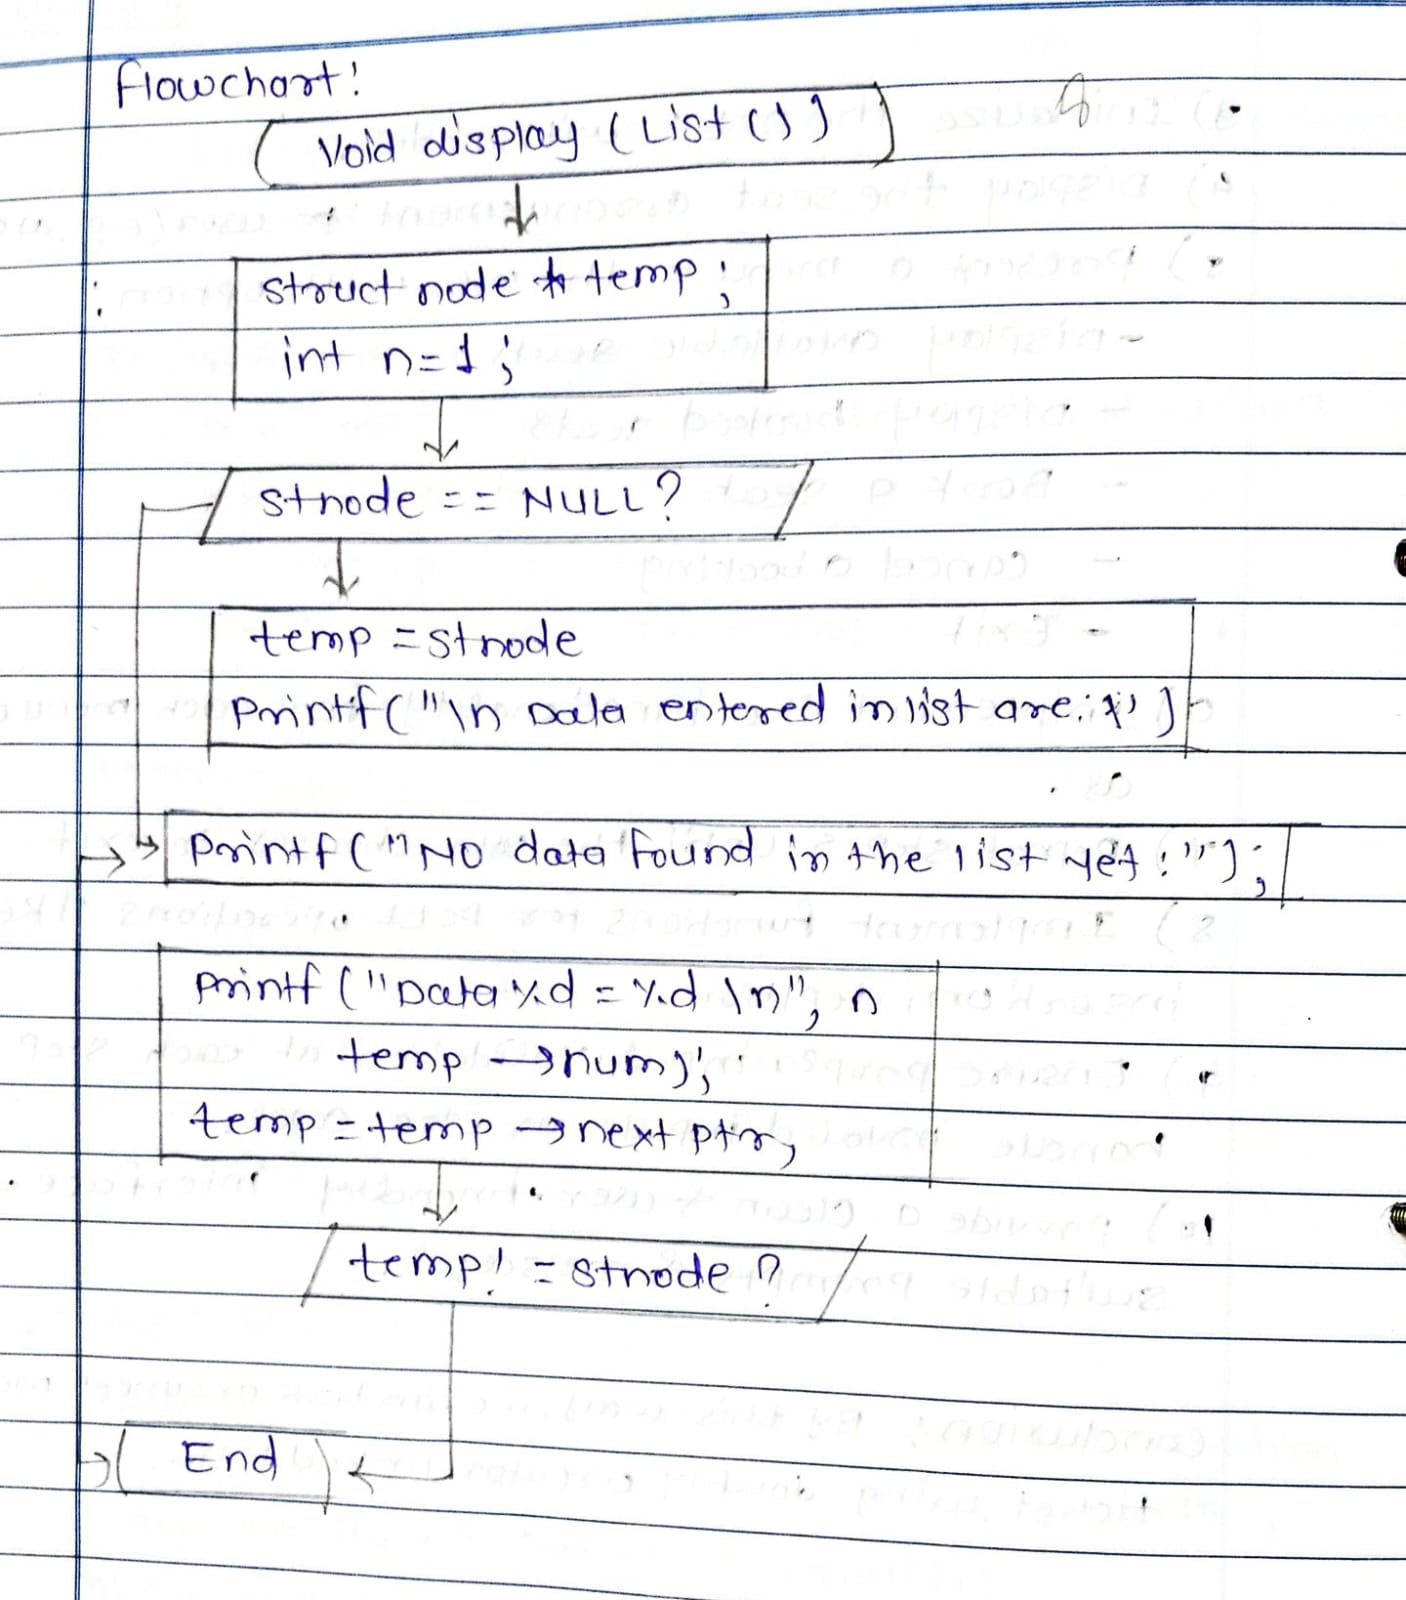 flowchart!
Void display (List ( ) )
struct node * temp ;
int n=1 ;
stnode == NULL?
temp = stnode
printf("\n Data entered in list are:
printf ("NO data found in the list yet!");
printf ("Data %d = %d \n", n
temp → num);
temp = temp → next ptr,
temp! = stnode ?
End